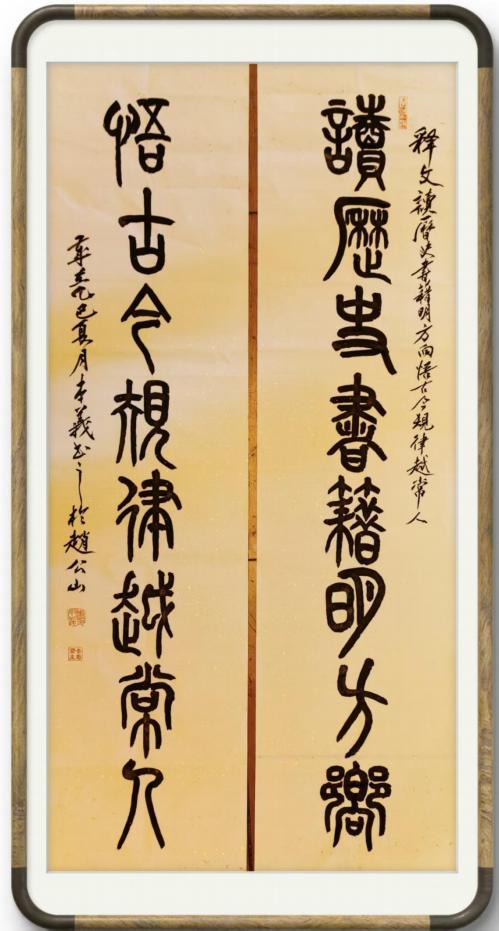 释文读历史書籍明方向悟古今規律越常人
讀歷史書籍明方嚮
悟古今規律越常人
歲在乙巳夏月本義書之於趙公山